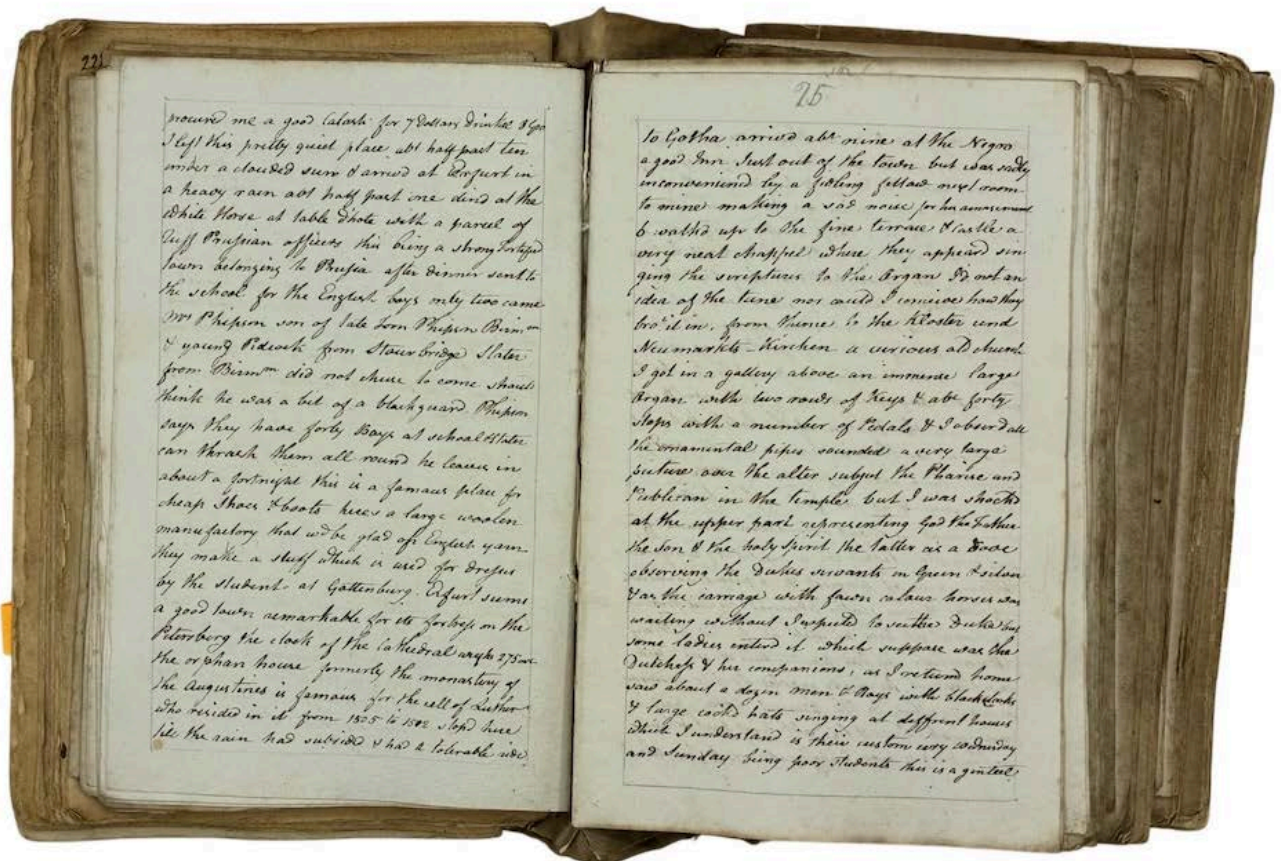 221
procured me a good Calash for 7 Dollars Drinkel &
I left this pretty quiet place abt half past ten
under a clouded sun & arrivd at Erfurt in
a heavy rain abt half past one dind at the
White Horse at table d'hote with a parcel of
Prussian officers this being a strong fortified
town belonging to Prussia after dinner sent to
the school for the English boys only two came
Mr Phipson son of late Tom Phipson Birmm
& young Pidcock from Stourbridge Slater
from Birmm did not chuse to come should
think he was a bit of a blackguard Phipson
says they have forty Boys at school Slater
can thrash them all round he leaves in
about a fortnight this is a famous place for
cheap Shoes & boots heres a large woolen
manufactory that wd be glad of English yarn
they make a stuff which is used for dresses
by the student at Gottenburg. Erfurt seems
a good town remarkable for its fortress on the
Petersberg the clock of the Cathedral weighs 275
the orphan house formerly the monastery of
the Augustines is famous for the cell of Luther
who resided in it from 1525 to 1512 stopd here
till the rain had subsided & had a tolerable ride
25
to Gotha arrivd abt nine at the Negro
a good Inn Just out of the town but was sadly
inconveniend by a fidling fellow next room
to mine making a sad noise for his amusement
6 walkd up to the fine terrace & Castle a
very neat chappel where they appeard sin
ging the scriptures to the Organ Id not an
idea of the tune nor could I conceive how they
brot it in. from thence to the Kloster und
Neumarkts-Kirchen a curious old church
I got in a gallery above an immense large
Organ with two rows of Keys & abt forty
stops with a number of Pedals & I observd all
the ornamental pipes sounded a very large
picture over the alter subject the Pharise and
Publican in the temple but I was shockd
at the upper part representing God the Father
the Son & the holy Spirit the latter as a Dove
observing the Dukes servants in Green & silver
& as the carriage with fawn colour horses was
waiting without I expected to see the Duke but
some ladies enterd it which suppose was the
Dutchess & her companions, as I returnd home
saw about a dozen men & Boys with black cloaks
& large cockd hats singing at different houses
which I understand is their custom every wednesday
and Sunday being poor Students this is a genteel